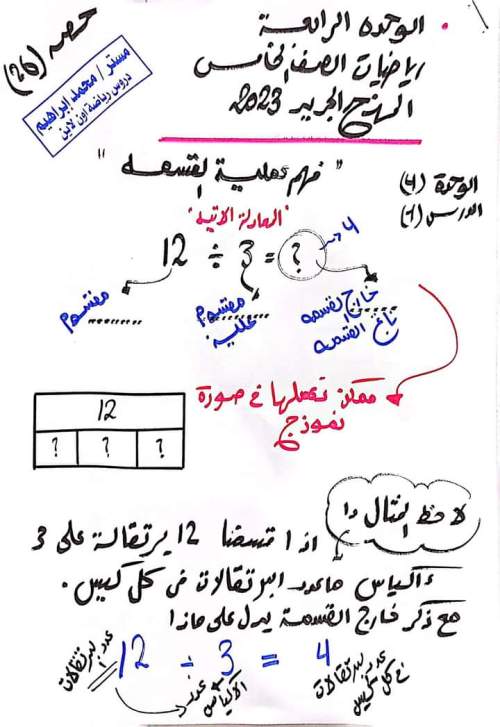 الوحدة الرابعة
رياضيات الصف الخامس
المنهج الجديد 2023
حصه (26)
مستر / محمد ابراهيم
دروس رياضة اون لاين
"فهم عملية القسمه"
الوحدة (4)
الدرس (1)
"المعادلة الاتيه"
12 ÷ 3 = ? → 4
خارج القسمه
ناتج القسمه
مقسوم
عليه
مقسوم
ممكن تعملها في صورة
نموذج
12
? ? ?
لاحظ المثال دا
اذا قسمنا 12 برتقالة على 3
أكياس ما عدد البرتقالات في كل كيس.
مع ذكر خارج القسمة يدل على ماذا
12 ÷ 3 = 4
عدد البرتقالات
عدد الأكياس
عدد البرتقالات
في كل كيس